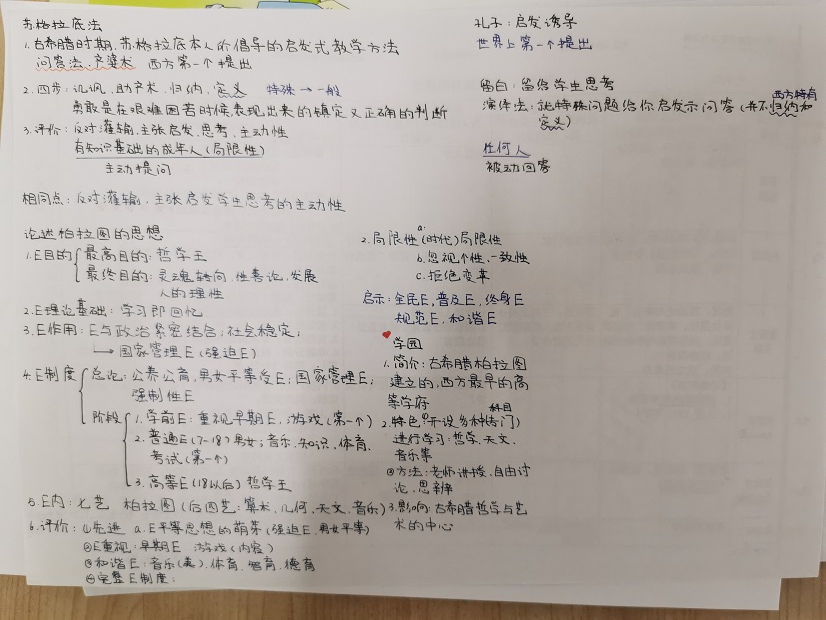 苏格拉底法
1.古希腊时期,苏格拉底本人所倡导的启发式教学方法
问答法、产婆术 西方第一个提出
2.四步:讥讽、助产术、归纳、定义 特殊→一般
勇敢是在艰难困苦时候表现出来的镇定又正确的判断
3.评价:反对灌输,主张启发、思考、主动性
有知识基础的成年人(局限性)
主动提问
相同点:反对灌输、主张启发学生思考的主动性
孔子:启发诱导
世界上第一个提出
留白:留给学生思考
演绎法:就特殊问题给你启发示问答(并不归纳和
西方特有
定义)
任何人
被动回答
论述柏拉图的思想
1.E目的 最高目的:哲学王
最终目的:灵魂转向、性善论,发展
人的理性
2.E理论基础:学习即回忆
3.E作用:E与政治紧密结合;社会稳定;
→国家管理E(强迫E)
4.E制度 总论:公养公育,男女平等受E;国家管理E;
强制性E
阶段 1.学前E:重视早期E,游戏(第一个)
2.普通E(7-18)男女;音乐、知识、体育、
考试(第一个)
3.高等E(18以后)哲学王
5.E内:七艺 柏拉图(后四艺:算术、几何、天文、音乐)
6.评价:①先进 a.E平等思想的萌芽(强迫E、男女平等)
②E重视:早期E 游戏(内容)
③和谐E:音乐(美)、体育、智育、德育
④完整E制度;
2.局限性 a.(时代)局限性
b.忽视个性、一致性
c.拒绝变革
启示:全民E,普及E,终身E
规范E,和谐E
学园
1.简介:古希腊柏拉图
建立的,西方最早的高
等学府
2.特色:①开设多种(专门)
科目
进行学习:哲学、天文、
音乐等
②方法:老师讲授、自由讨
论、思辨
3.影响:古希腊哲学与艺
术的中心